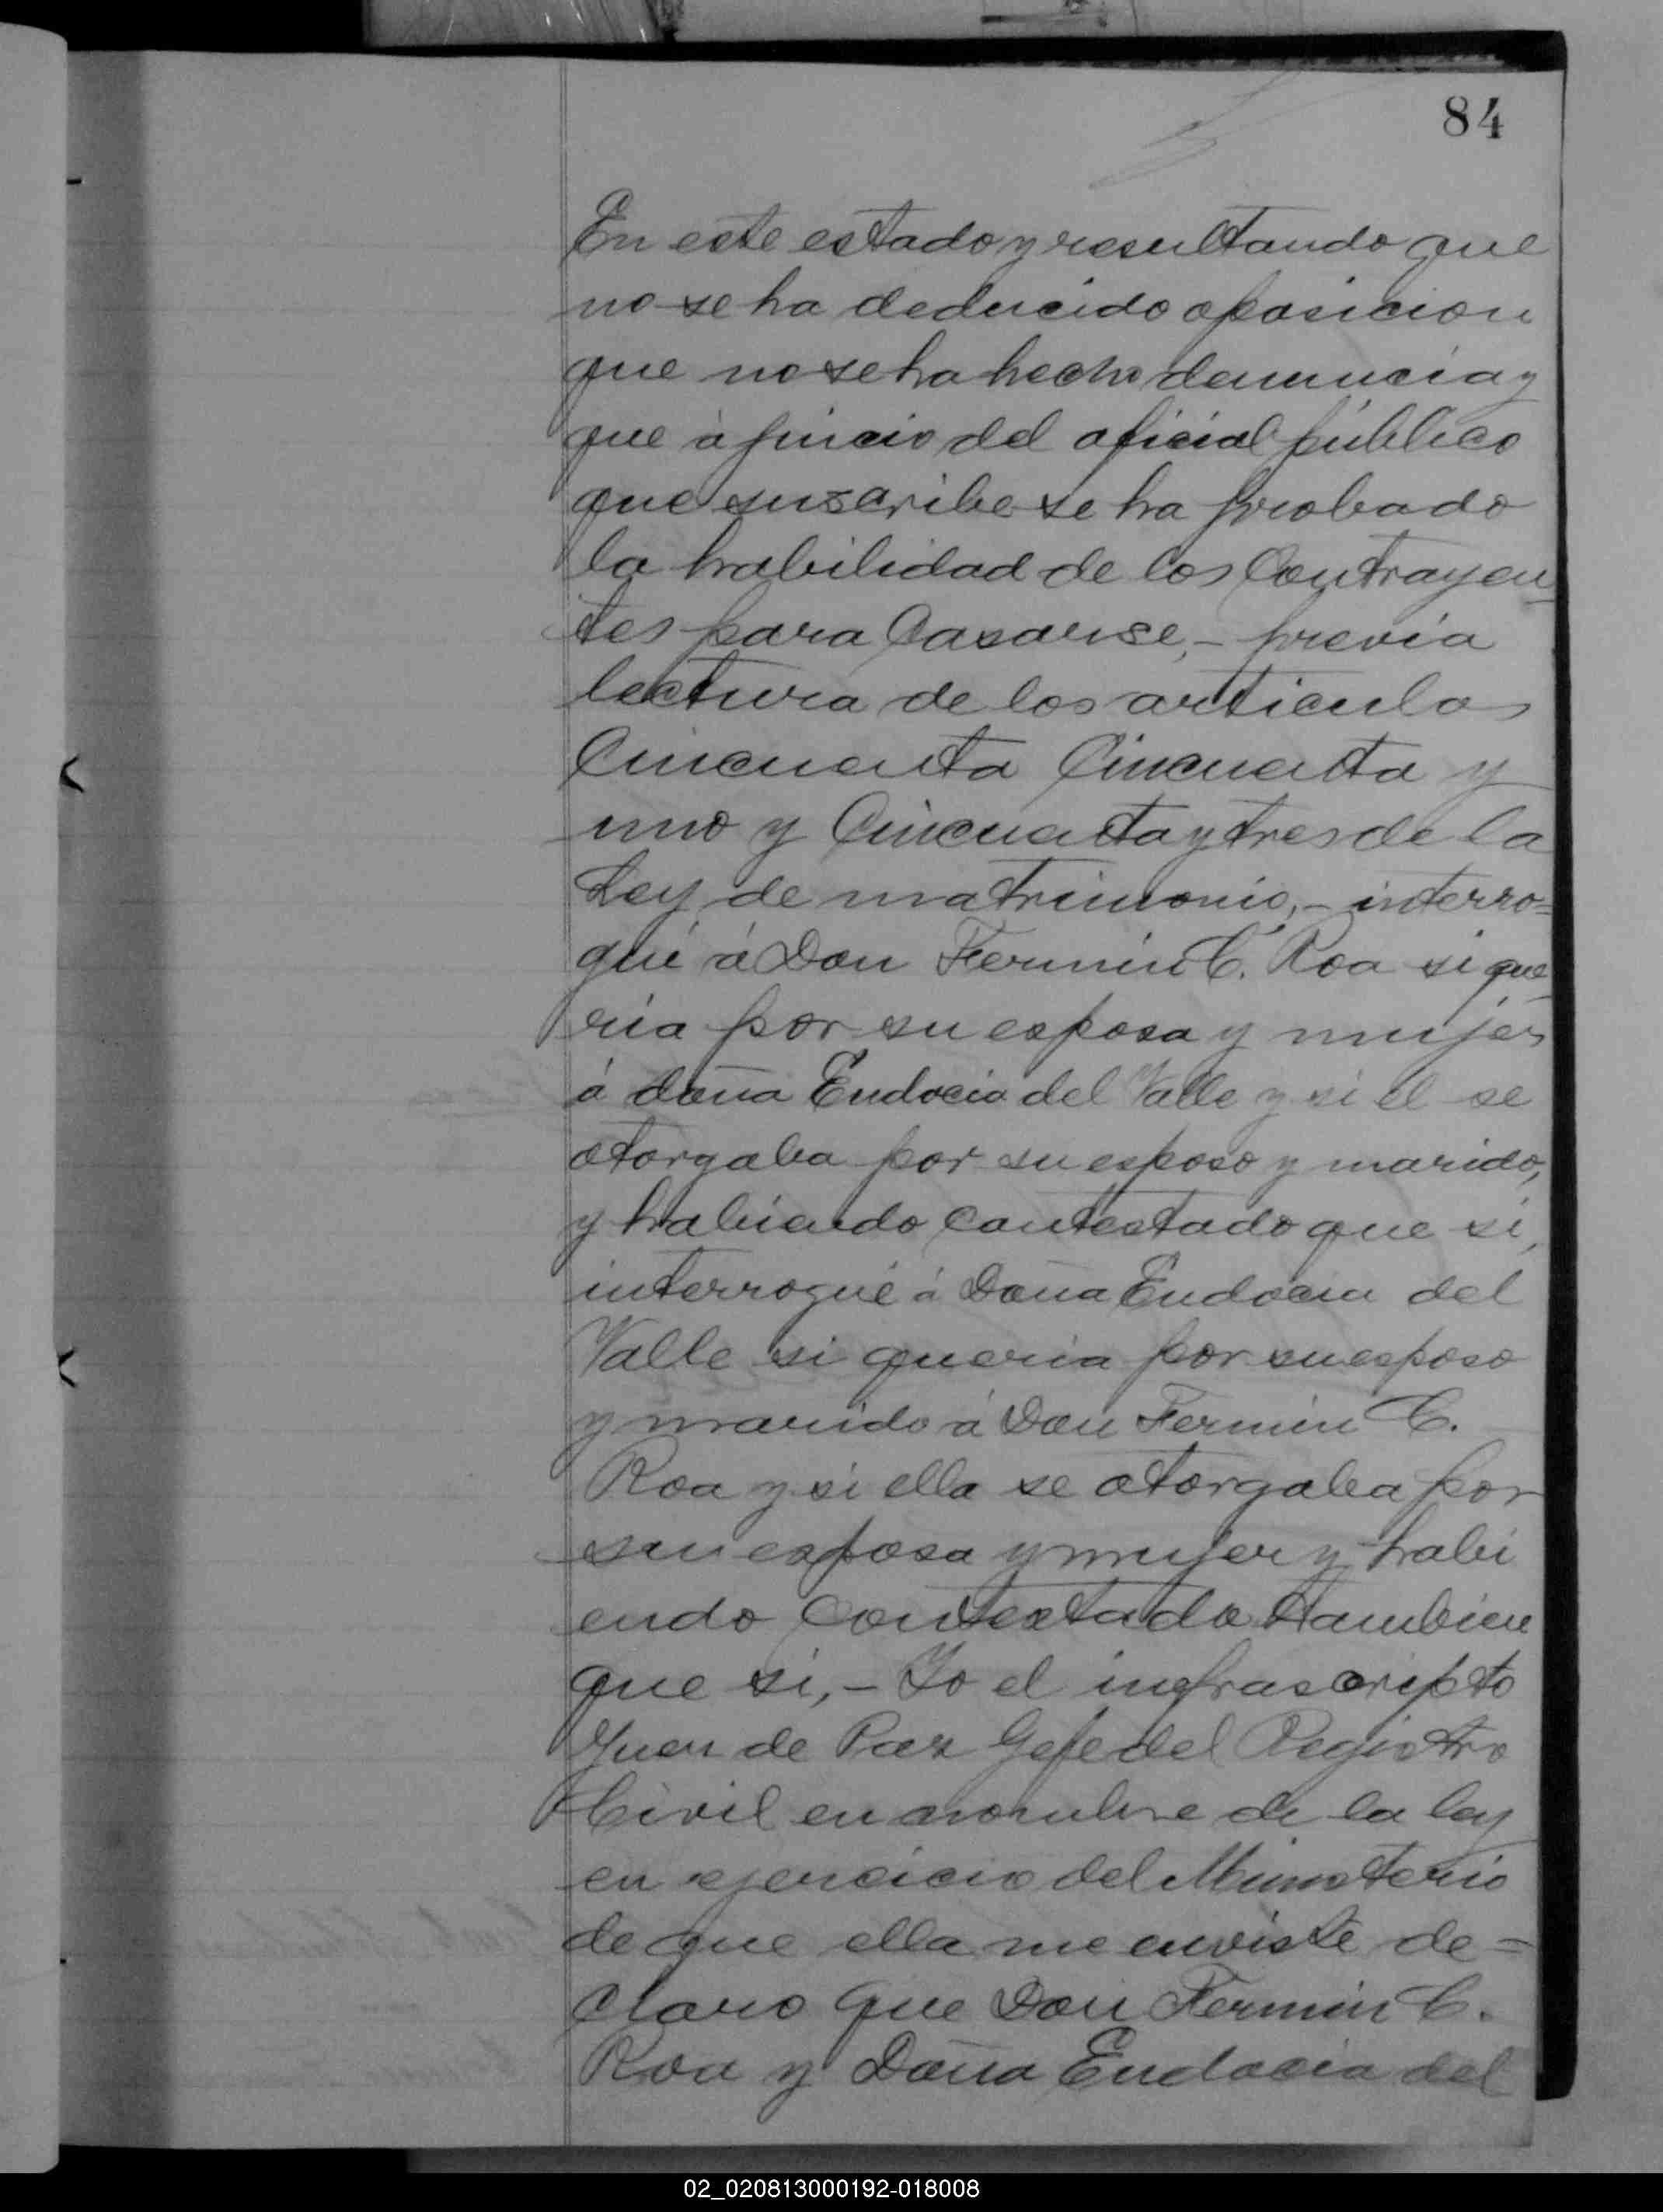 84
En este estado y resultando que
no se ha deducido oposicion
que no se ha hecho denuncia y
que à juicio del oficial público
que suscribe se ha probado
la habilidad de los Contrayen
tes para Casarse,- previa
lectura de los articulos
Cincuenta Cincuenta y
uno y Cincuenta y tres de la
Ley de matrimonio,- interro=
gué á Don Fermin C. Roa si que
ria por su esposa y mujer
á doña Eudocia del Valle y si el se
otorgaba por su esposo y marido,
y habiendo contestado que si,
interrogué á Doña Eudocia del
Valle si queria por su esposo
y marido á Don Fermin C.
Roa y si ella se otorgaba por
su esposa y mujer y habi
endo Contestado tambien
que si,- Yo el infrascripto
Juez de Paz Gefe del Registro
Civil en nombre de la ley
en ejercicio del Ministerio
de que ella me enviste de=
claro que Don Fermin C.
Roa y Doña Eudocia del
02_020813000192-018008